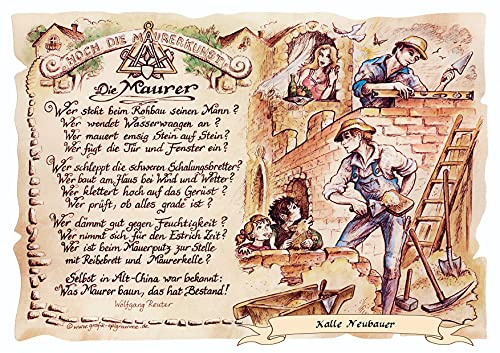 HOCH DIE MAURERKUNST!
Die Maurer
Wer steht beim Rohbau seinen Mann?
Wer wendet Wasserwaagen an?
Wer mauert emsig Stein auf Stein?
Wer fügt die Tür und Fenster ein?
Wer schleppt die schweren Schalungsbretter?
Wer baut am Haus bei Wind und Wetter?
Wer klettert hoch auf das Gerüst?
Wer prüft, ob alles grade ist?
Wer dämmt gut gegen Feuchtigkeit?
Wer nimmt sich für den Estrich Zeit?
Wer ist beim Mauerputz zur Stelle
mit Reibebrett und Maurerkelle?
Selbst in Alt-China war bekannt:
Was Maurer baun, das hat Bestand!
Wolfgang Reuter
© www.grafik-epigramme.de
Kalle Neubauer